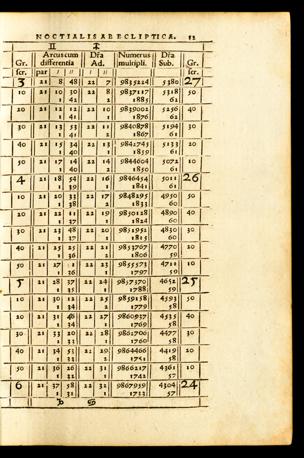 NOCTIALIS AB ECLIPTICA. 12
Arcus cum Dr̃a Numerus Dr̃a
Gr. differentia Ad. multipli. Sub. Gr.
scr. par scr.
3 21 8 48 22 7 9835224 5380 27
10 21 10 30 22 8 9837117 5318 50
1 41 2 1885 62
20 21 12 11 22 10 9839002 5256 40
1 41 2 1876 62
30 21 13 53 22 11 9840878 5194 30
1 41 2 1867 61
40 21 15 34 22 13 9842745 5133 20
1 40 1 1859 61
50 21 17 14 22 14 9844604 5072 10
1 40 2 1850 61
4 21 18 54 22 16 9846454 5011 26
1 39 1 1841 61
10 21 20 33 22 17 9848295 4950 50
1 38 2 1833 60
20 21 22 11 22 19 9850128 4890 40
1 37 1 1824 60
30 21 23 48 22 20 9851952 4830 30
1 37 2 1815 60
40 21 25 25 22 22 9853767 4770 20
1 36 1 1806 59
50 21 27 1 22 23 9855573 4711 10
1 36 1 1797 59
5 21 28 37 22 24 9857370 4652 25
1 35 1 1788 59
10 21 30 12 22 25 9859158 4593 50
1 34 2 1779 58
20 21 31 46 22 27 9860937 4535 40
1 34 1 1769 58
30 21 33 20 22 28 9862706 4477 30
1 33 1 1760 58
40 21 34 53 22 29 9864466 4419 20
1 33 2 1751 58
50 21 36 26 22 31 9866217 4361 10
1 32 1 1742 57
6 21 37 58 22 32 9867959 4304 24
1 31 1 1733 57